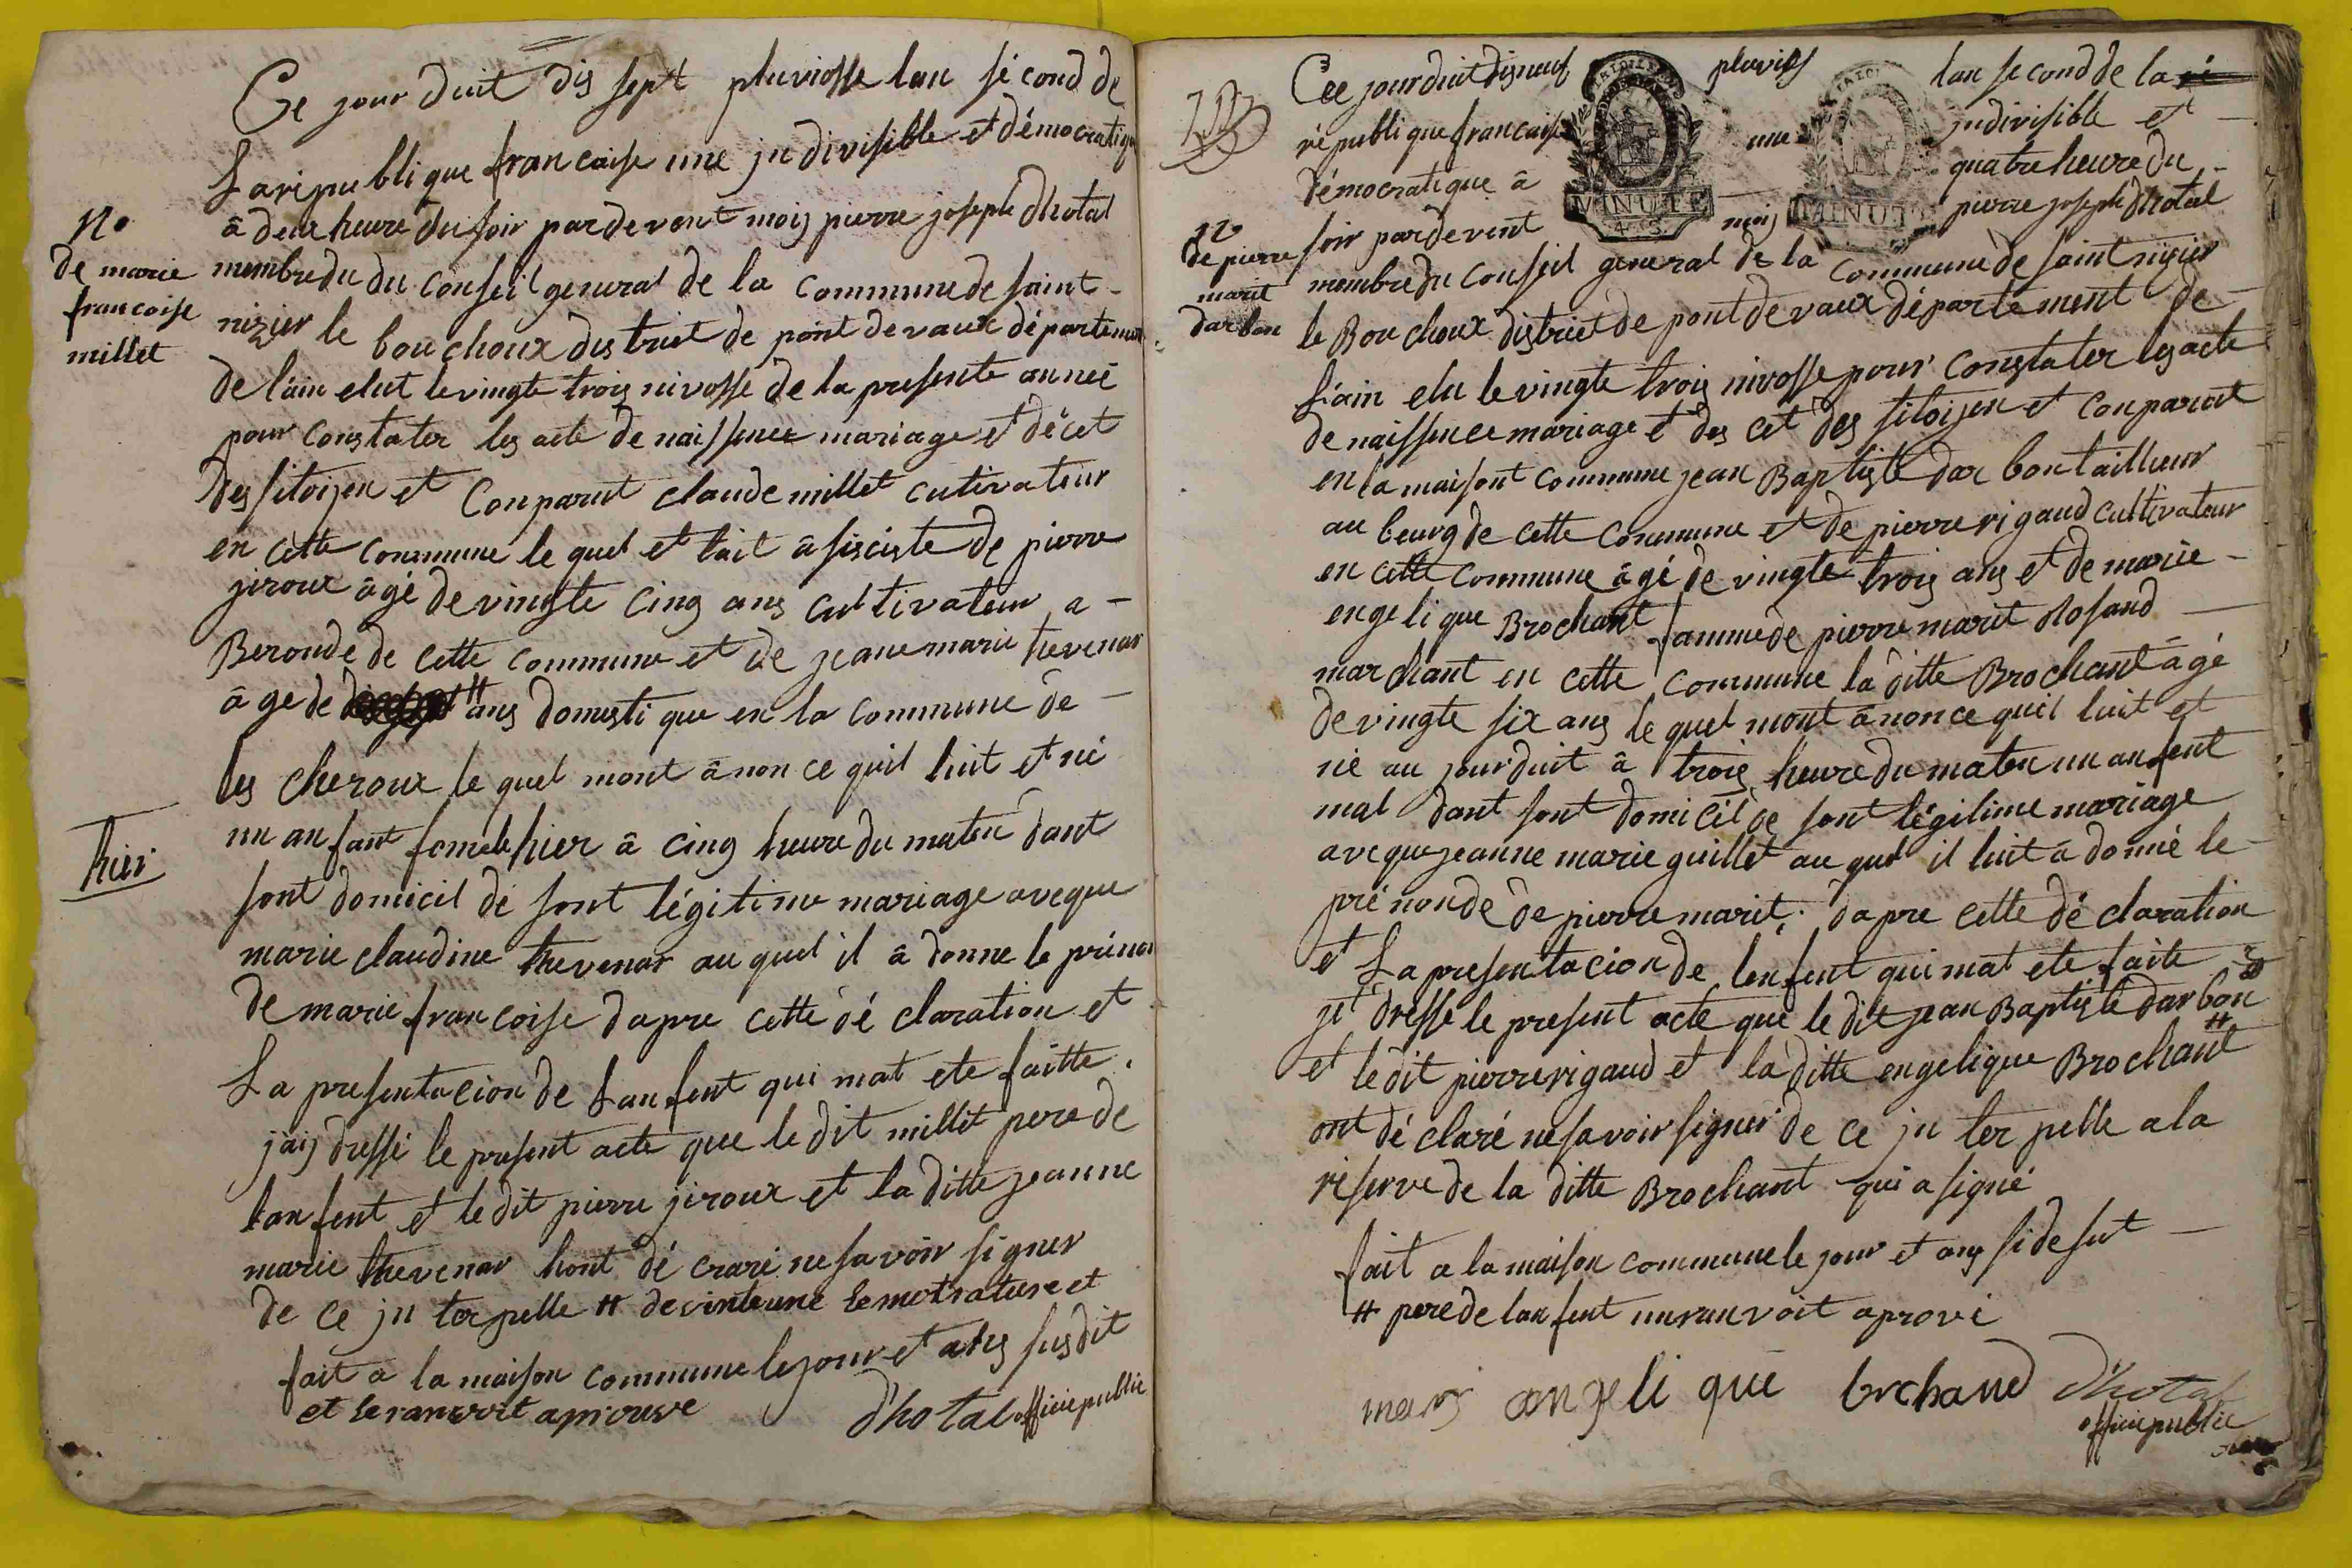 Ce jour duit dis sept pluviosse lan second de
La republique francaise une jndivisible et démocratiqu
â deux heure du soir pardevent moij pierre joseph dhotal
membre du du Conseil general de la Commune de saint-
nizier le bouchoux district de pont devaux départemen
de l'ain elut le vingte trois nivosse de la presente anneé
pour Constater les acte de naissence mariage et décet
des sitoijen et Conparut claude millet cutivateur
en cette commune le quel et tait âsisciste de pierre
jiroux âgé de vingte cinq ans cultivateur a-
Beronde de cette commune et de jeane marie thevenar
âge de # ans domestique en la commune de-
les cheroux le quel mont ânonce quil luit et né
un anfant femele hier â cinq heure du maten dant
sont domicil dé sont légitime mariage aveque
marie claudine thevenar au quel il â donne le prénon
de marie francoise dapre cette déclaration et
La presentacion de Lanfent qui mat ete faitte.
jaij dressé le present acte que le dit millet pere de
lanfent et le dit pierre jiroux et la ditte jeanne
marie thevenar hont décraré ne savoir signer
de ce jnterpelle # de vinteune le mot rature et
fait a la maison commune le jour et ans susdit
et le ranvoit aprouve dhotal officie public
No
de marie
francoise
millet
hier
Cee jour duit disneuf pluvios lan second de la
république francaise une jndivisible et-
démocratique â quatre heure du-
soir pardevent moij pierre joseph dhotal
MINUTE
MINUTE
membre du Conseil general de la Commune de saint nizier
le Bouchoux district de pont devaux département de-
L'ain elu le vingte trois nivosse pour Constater les acte
de naissence mariage et des cet des sitoijen et Conparut
en la maisont commune jean Baptiste darbon tailleur
au bourg de cette Commune et de pierre rigaud cultivateur
en cette commune âgé de vingte trois ans et de marie-
engelique Brochant famme de pierre marit Rosand
marchant en cette commune la ditte Brochant âgé
de vingte six ans le quel mont ânonce quil luit et
né au jourduit â trois heure du maten un anfent
mal dant sont domicil de sont légitime mariage
aveque jeanne marie guillet au quel il luit â donné le-
prénon de de pierre marit; dapre cette déclaration
et La presentacion de lenfent qui mat ete faite
je dresse le present acte que le dit jean Baptiste darbon
#
et le dit pierre rigaud et la ditte engelique Brochant
ont déclaré ne savoir signer de ce jnterpelle a la
réserve de la ditte Brochant qui a signé
fait a la maison commune le jour et ans sidesut-
# pere de lanfent un ranvoit aprové
mary angelique brchand dhotal
officie public
No
de pierre
marit
darbon